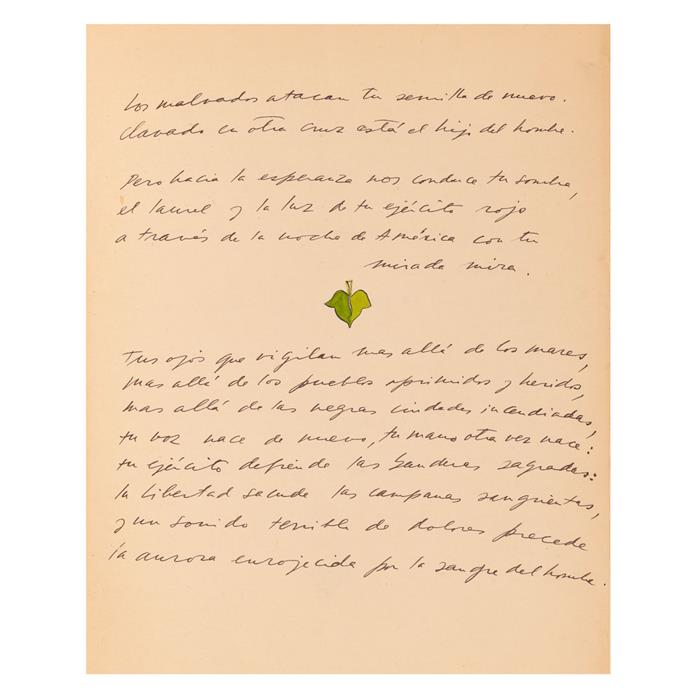 Los malvados atacan tu semilla de nuevo.
Clavado en otra cruz está el hijo del hombre.
Pero hacia la esperanza nos conduce tu sombra,
el laurel y la luz de tu ejército rojo
a través de la noche de América con tu
mirada mira.
Tus ojos que vigilan mas allá de los mares,
mas allá de los pueblos oprimidos y heridos,
mas allá de las negras ciudades incendiadas,
tu voz nace de nuevo, tu mano otra vez nace:
tu ejército defiende las banderas sagradas:
la libertad sacude las campanas sangrientas,
y un sonido terrible de dolores precede
la aurora enrojecida por la sangre del hombre.